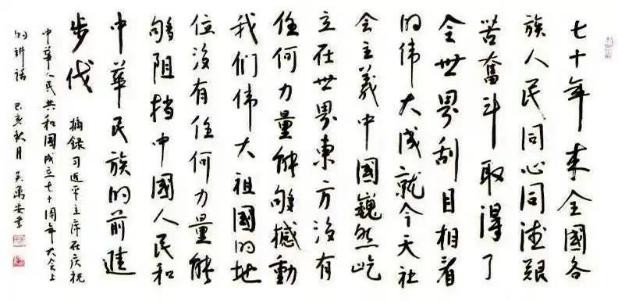 七十年来全國各
族人民同心同德艱
苦奮斗取得了
令世界刮目相看
的伟大成就今天社
会主義中國巍然屹
立在世界東方沒有
任何力量能夠撼動
我们伟大祖國的地
位沒有任何力量能
夠阻挡中國人民和
中華民族的前進
步伐 摘録习近平主席在庆祝
中華人民共和國成立七十周年大会上
的讲话 己亥秋月